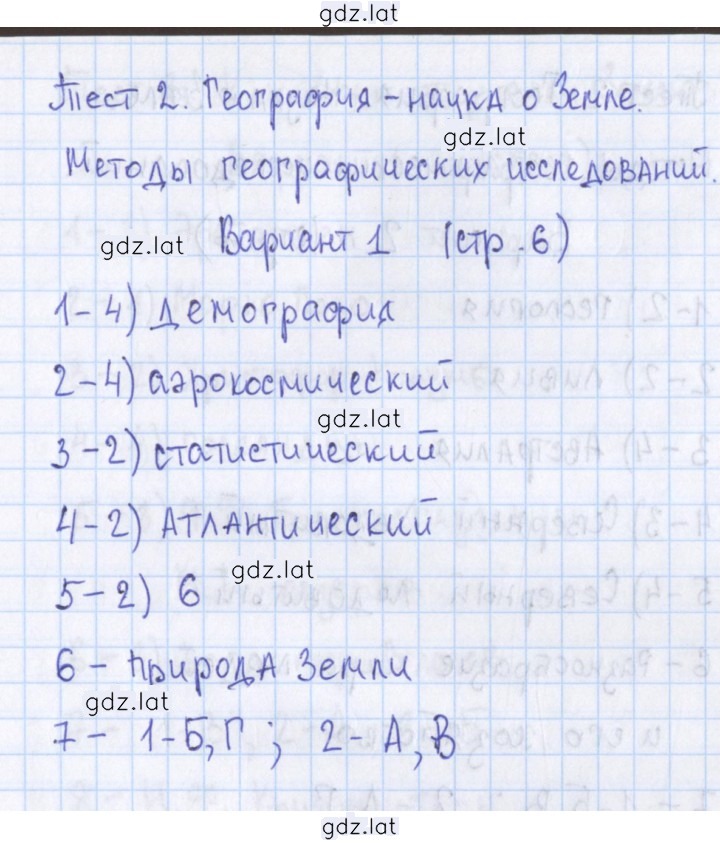 gdz.lat
Тест 2. География - наука о Земле.
gdz.lat
Методы географических исследований.
gdz.lat Вариант 1 (стр. 6)
1-4) демография
2-4) аэрокосмический
gdz.lat
3-2) статистический
4-2) Атлантический
gdz.lat
5-2) 6
6 - природа Земли
gdz.lat
7 - 1-Б,Г ; 2-А,В
gdz.lat